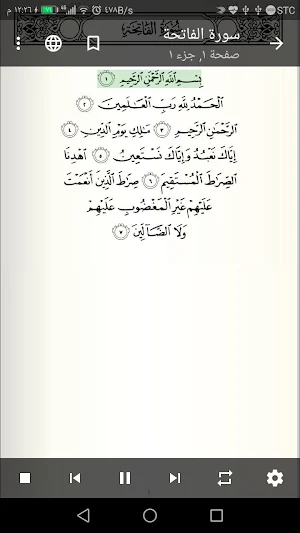 م ١٢:٢٦ ٤٧٨B/s STC
سورة الفاتحة
صفحة ١, جزء ١
بِسْمِ ٱللَّهِ ٱلرَّحْمَٰنِ ٱلرَّحِيمِ ١
ٱلْحَمْدُ لِلَّهِ رَبِّ ٱلْعَٰلَمِينَ ٢
ٱلرَّحْمَٰنِ ٱلرَّحِيمِ ٣ مَٰلِكِ يَوْمِ ٱلدِّينِ ٤
إِيَّاكَ نَعْبُدُ وَإِيَّاكَ نَسْتَعِينُ ٥ ٱهْدِنَا
ٱلصِّرَٰطَ ٱلْمُسْتَقِيمَ ٦ صِرَٰطَ ٱلَّذِينَ أَنْعَمْتَ
عَلَيْهِمْ غَيْرِ ٱلْمَغْضُوبِ عَلَيْهِمْ
وَلَا ٱلضَّآلِّينَ ٧